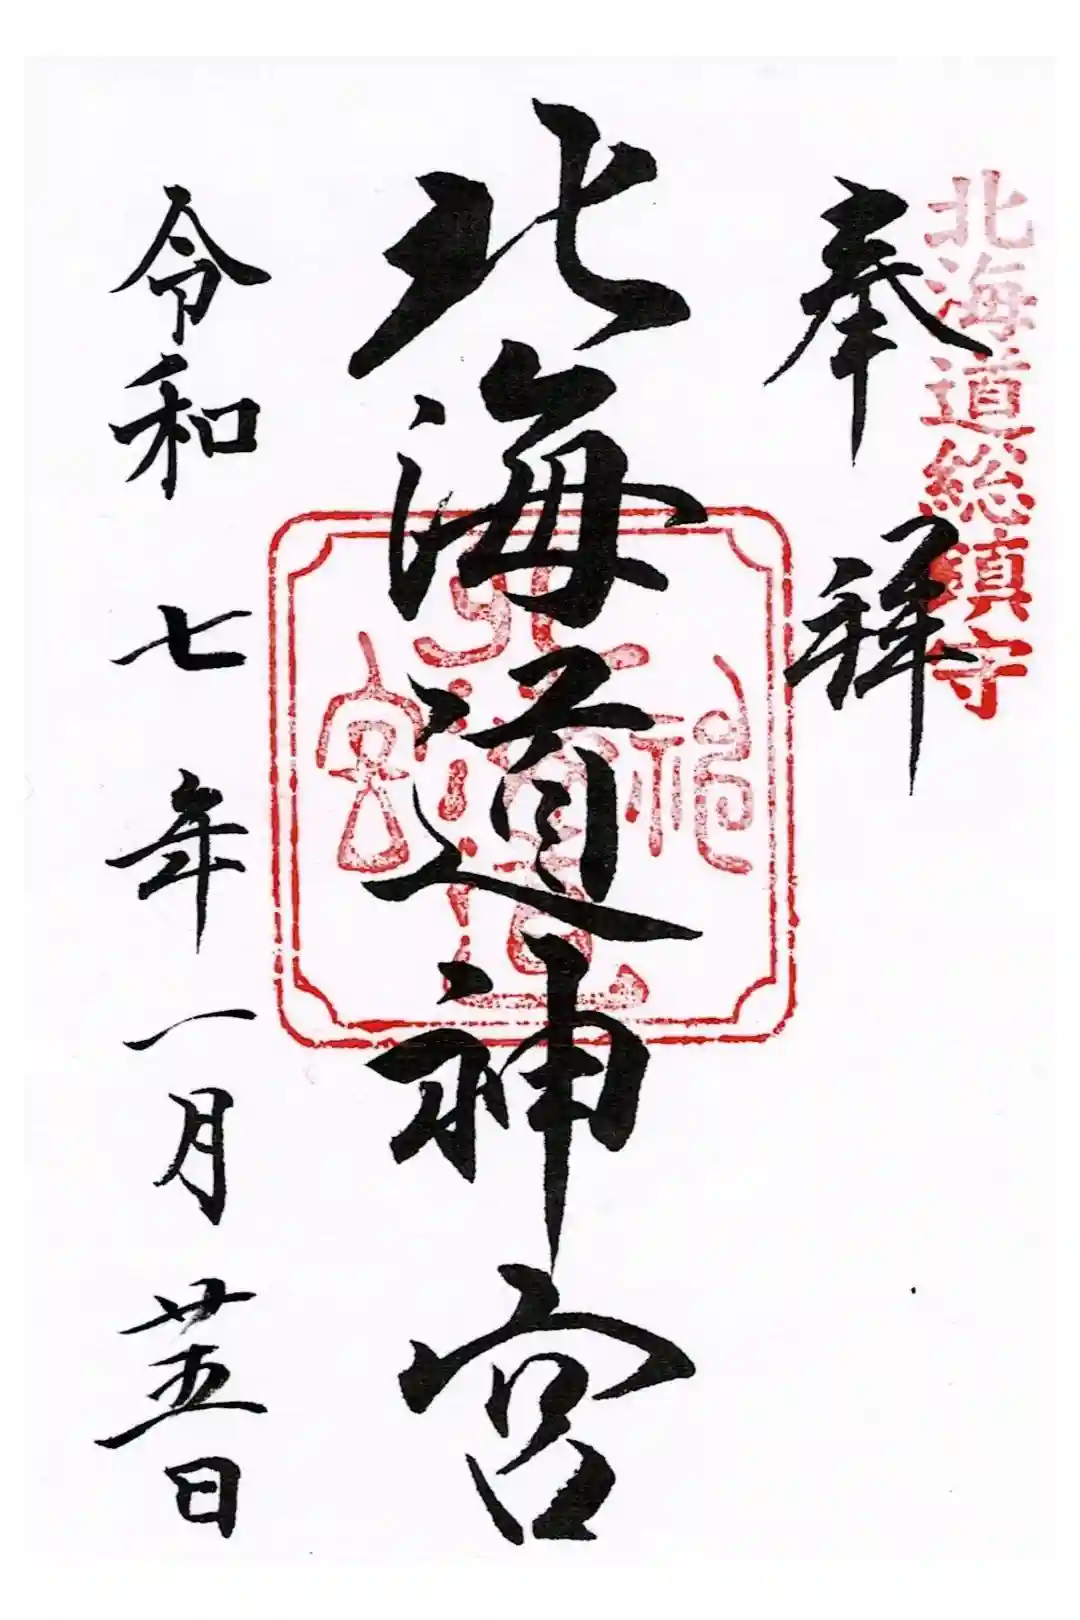 北海道総鎮守
奉拝
北海道神宮
令和七年一月廿五日